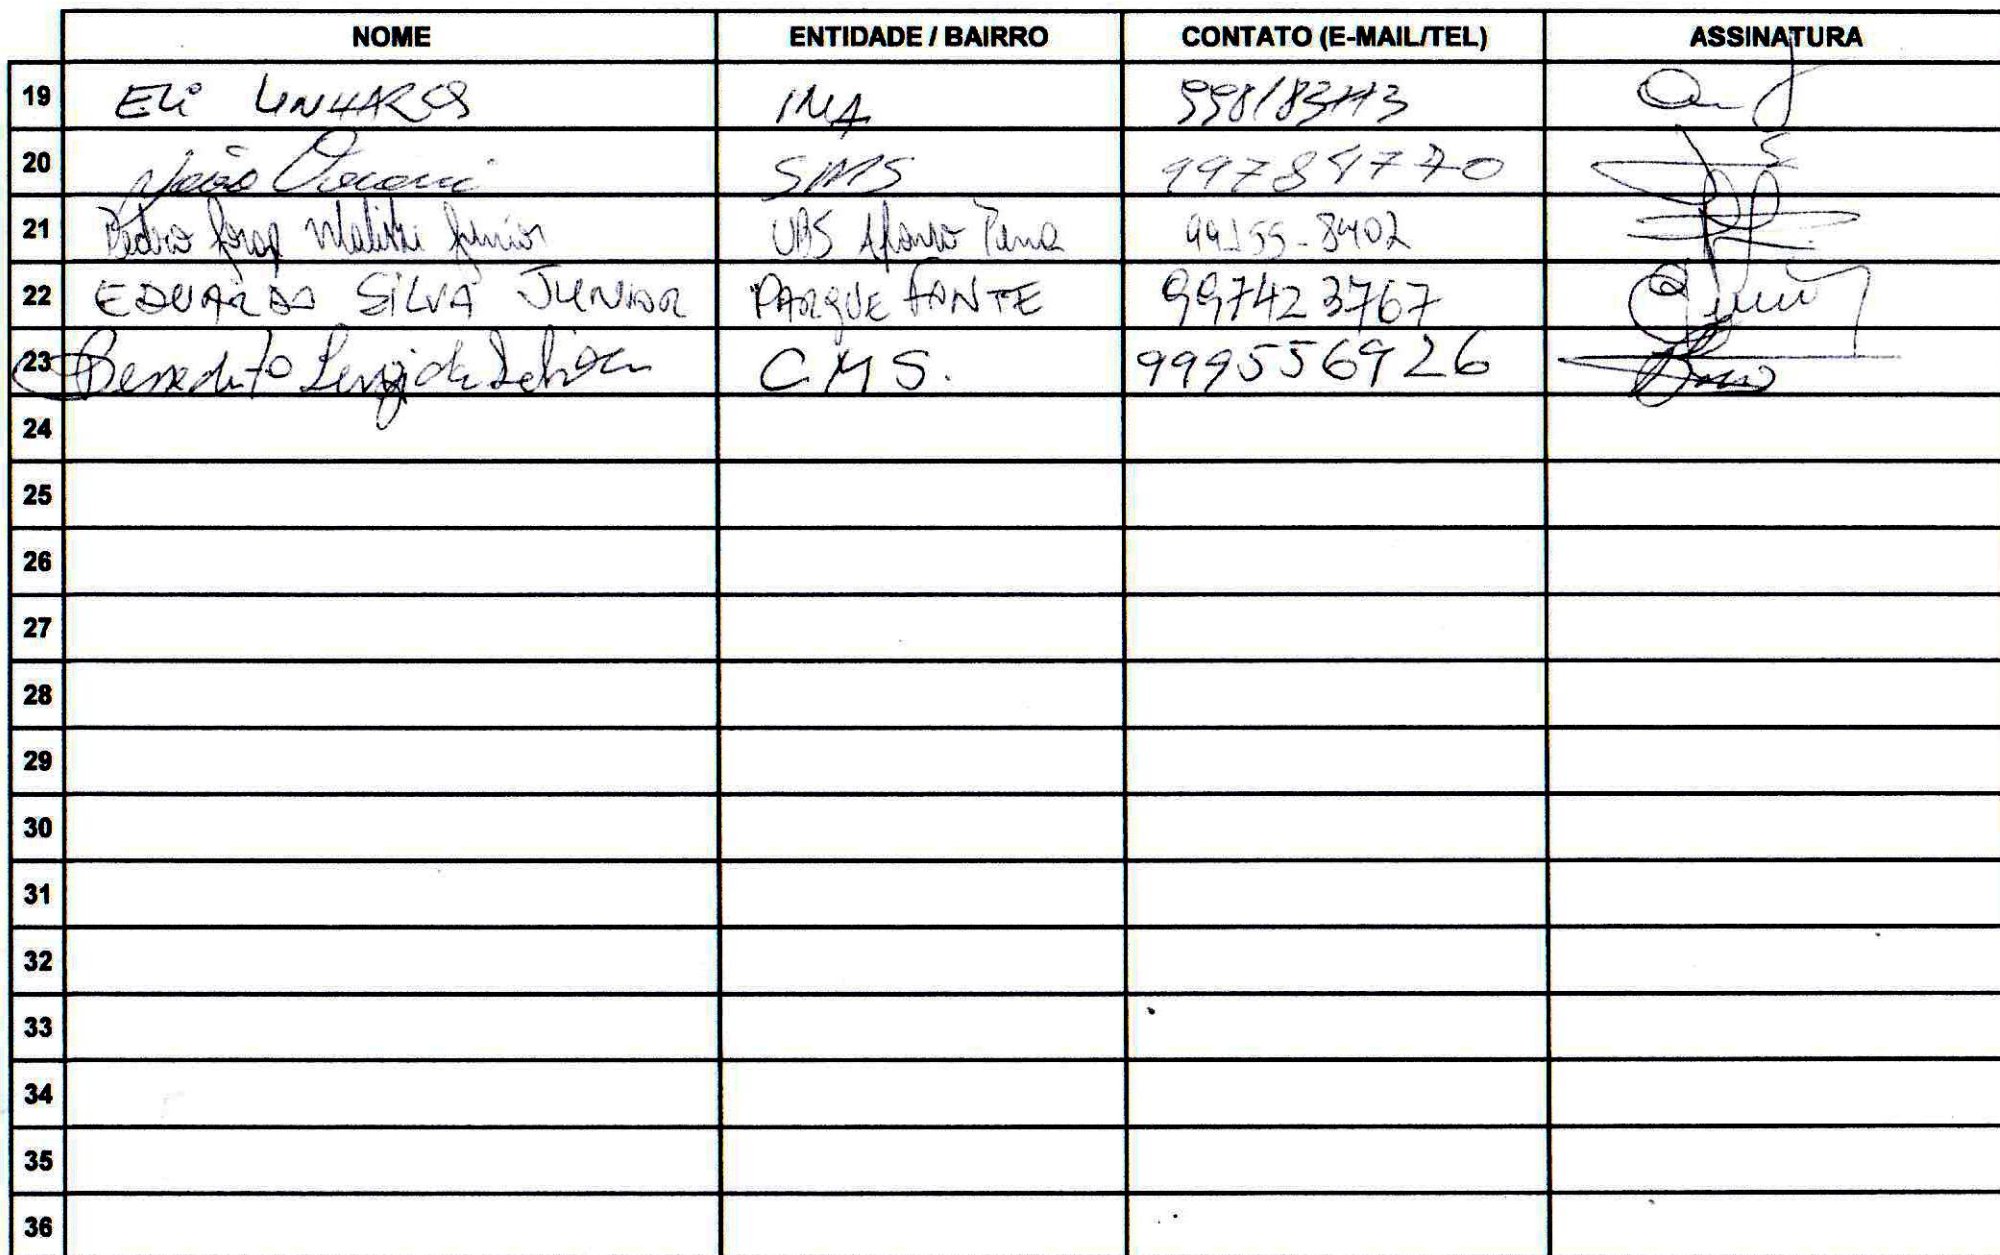 NOME ENTIDADE / BAIRRO CONTATO (E-MAIL/TEL) ASSINATURA
19 ELi LINHARES IMA
20 João SMS 997847770
21 Pedro Junior UBS Afonso Pena 99155-8402
22 EDUARDO SiLVA JUNIOR PARQUE FONTE 997423767
23 Benedito C.M.S. 999556926
24
25
26
27
28
29
30
31
32
33
34
35
36